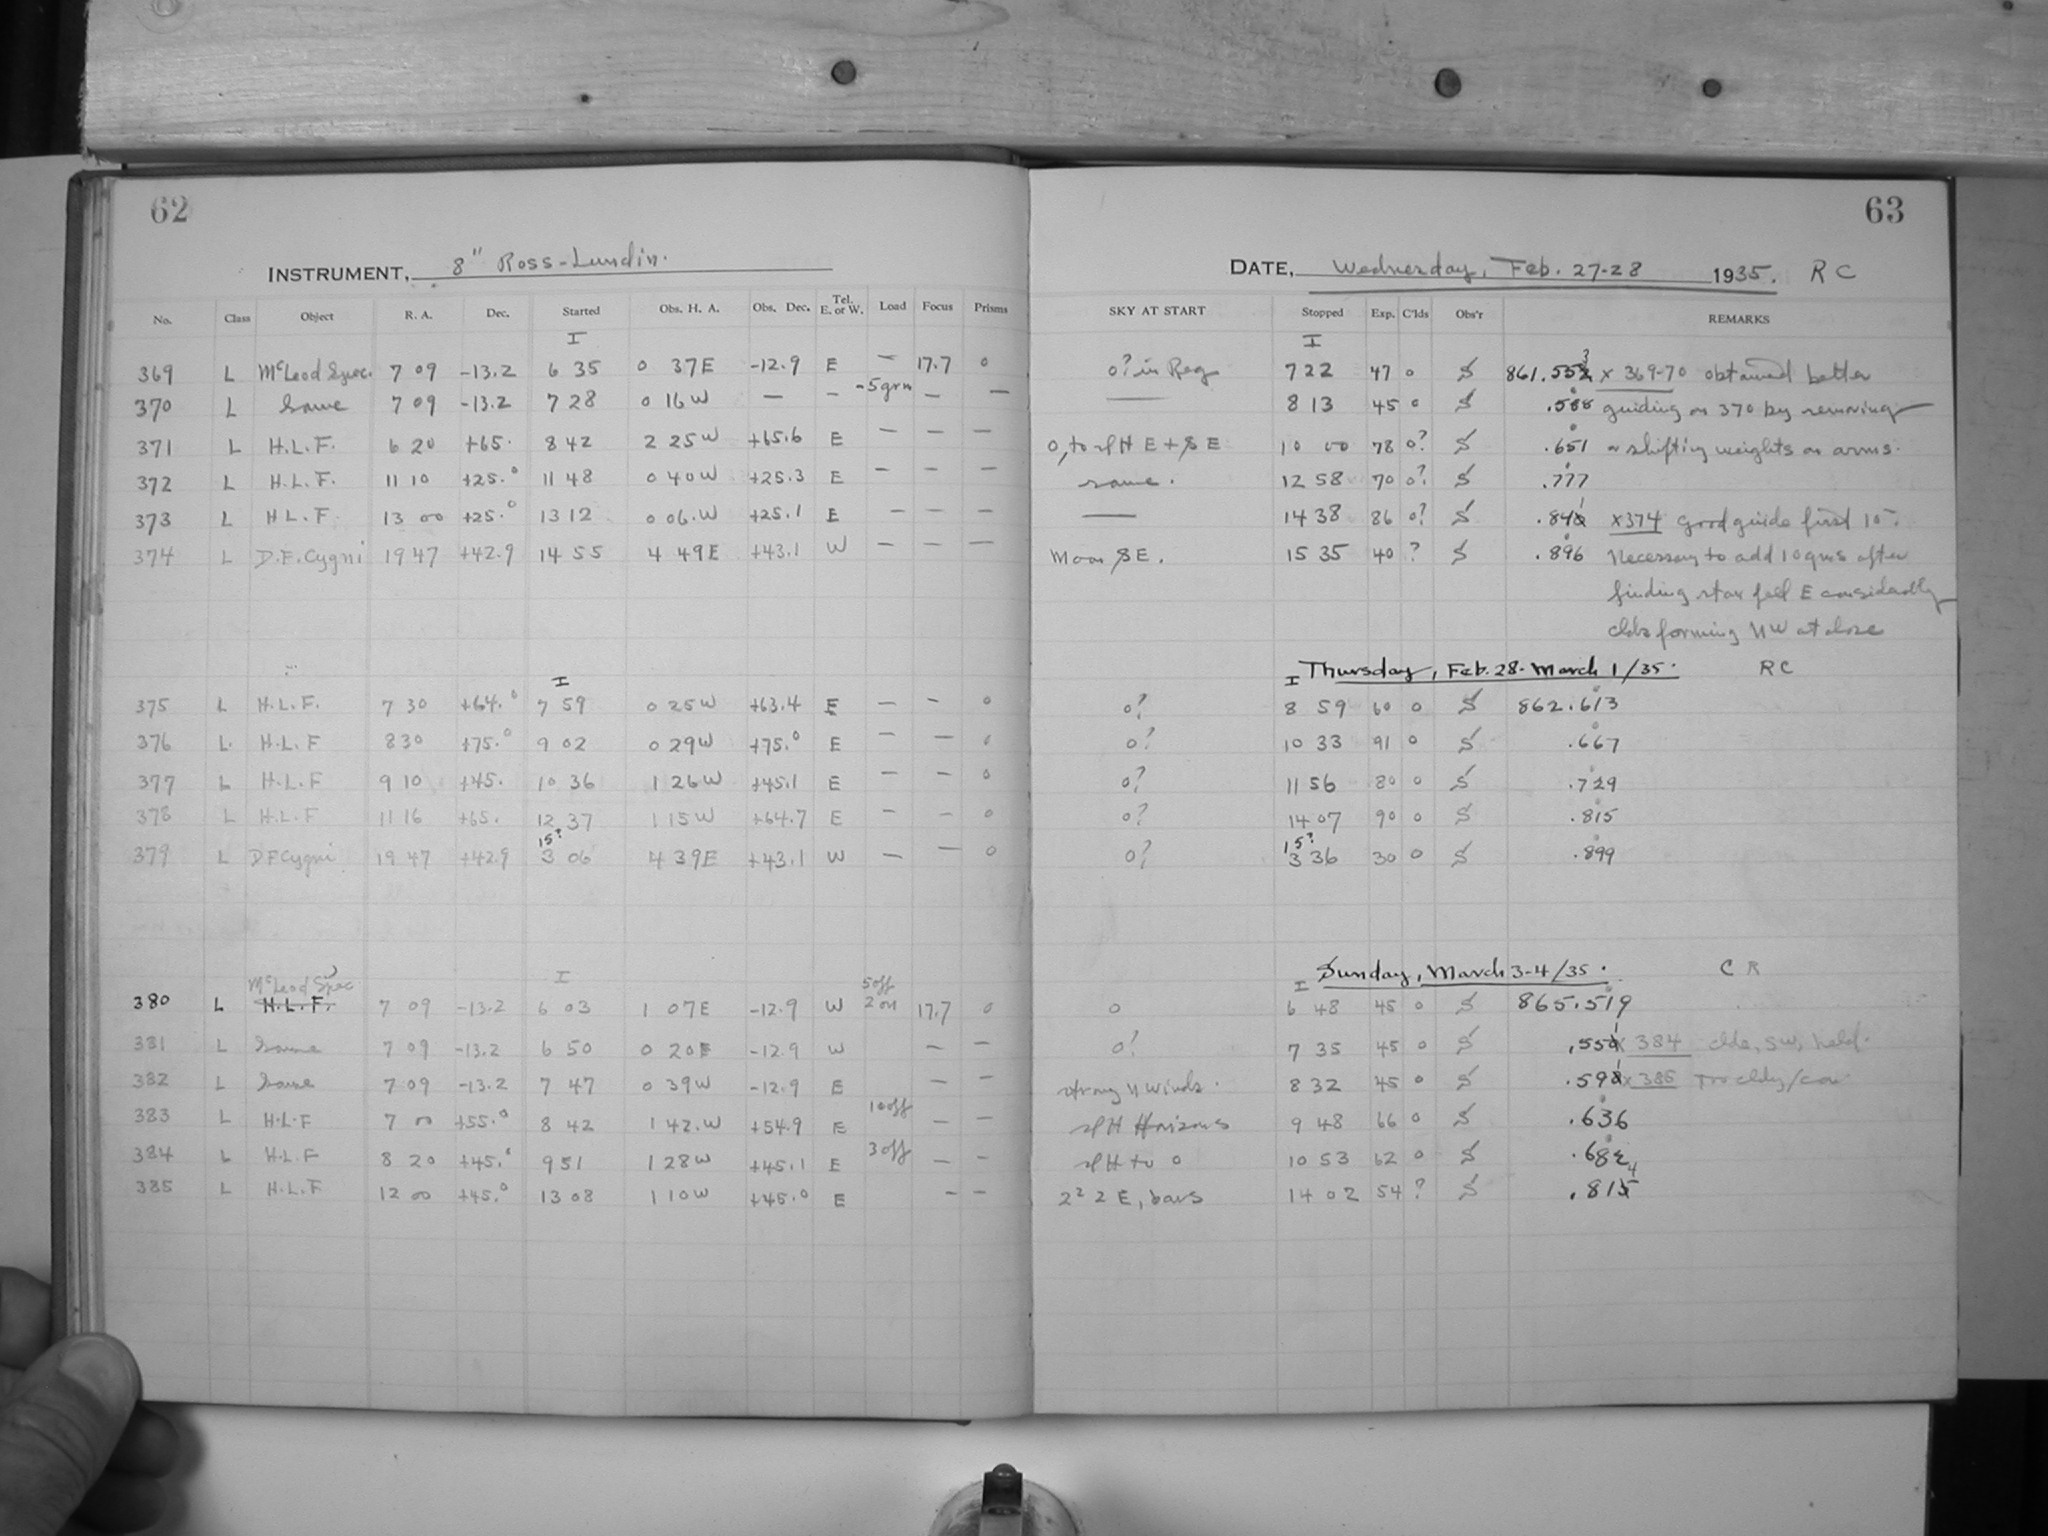 62
63
INSTRUMENT, 8" Ross-Lundin.
DATE, Wednesday, Feb. 27-28 1935. R C
No. Class Object R. A. Dec. Started Obs. H. A. Obs. Dec. Tel. E. or W. Load Focus Prisms SKY AT START Stopped Exp. C'lds Obs'r REMARKS
I I
369 L McLeod Spec. 7 09 -13.2 6 35 0 37E -12.9 E — 17.7 0 0? in Reg 7 22 47 0 S 861.553 x 369-70 obtained better
370 L Same 7 09 -13.2 7 28 0 16W — - -5grm — — —— 8 13 45 0 S .588 guiding on 370 by removing
371 L H.L.F. 6 20 +65. 8 42 2 25W +65.6 E — — — 0, to spH E + SE 10 00 78 0? S .651 or shifting weights on arms.
372 L H.L.F. 11 10 +25.0 11 48 0 40W +25.3 E — — — same. 12 58 70 0? S .777
373 L H L.F. 13 00 +25.0 13 12 0 06.W +25.1 E — — — —— 14 38 86 0? S .841 x374 Good guide first 15-.
374 L D.F. Cygni 19 47 +42.9 14 55 4 49E +43.1 W — — — Moon SE. 15 35 40 ? S .896 Necessary to add 10 gms after
finding star fell E considerably
clds forming NW at close
I I Thursday, Feb. 28- March 1/35. RC
375 L H.L.F. 7 30 +64.0 7 59 0 25W +63.4 E — — 0 0? 8 59 60 0 S 862.613
376 L. H.L.F 8 30 +75.0 9 02 0 29W +75.0 E — — 0 0? 10 33 91 0 S .667
377 L H.L.F 9 10 +45. 10 36 1 26W +45.1 E — — 0 0? 11 56 80 0 S .729
378 L H.L.F 11 16 +65. 12 37 1 15W +64.7 E — — 0 0? 14 07 90 0 S .815
15? 15?
379 L DF Cygni 19 47 +42.9 3 06 4 39E +43.1 W — — 0 0? 3 36 30 0 S .899
I I Sunday, March 3-4/35. C R
McLeod Spec 5off
380 L H.L.F. 7 09 -13.2 6 03 1 07E -12.9 W 2 on 17.7 0 0 6 48 45 0 S 865.519
381 L Same 7 09 -13.2 6 50 0 20E -12.9 W — — 0? 7 35 45 0 S .551 x 384 clds, SW, held.
382 L Same 7 09 -13.2 7 47 0 39W -12.9 E — — strong N winds. 8 32 45 0 S .591 x 385 Too cldy/con
383 L H.L.F 7 00 +55.0 8 42 1 42.W +54.9 E 10off — — spH Horizons 9 48 66 0 S .636
384 L H.L.F 8 20 +45.0 9 51 1 28W +45.1 E 3off — — spH to 0 10 53 62 0 S .682
385 L H.L.F 12 00 +45.0 13 08 1 10W +45.0 E — — 2² 2 E, bars 14 02 54 ? S .814